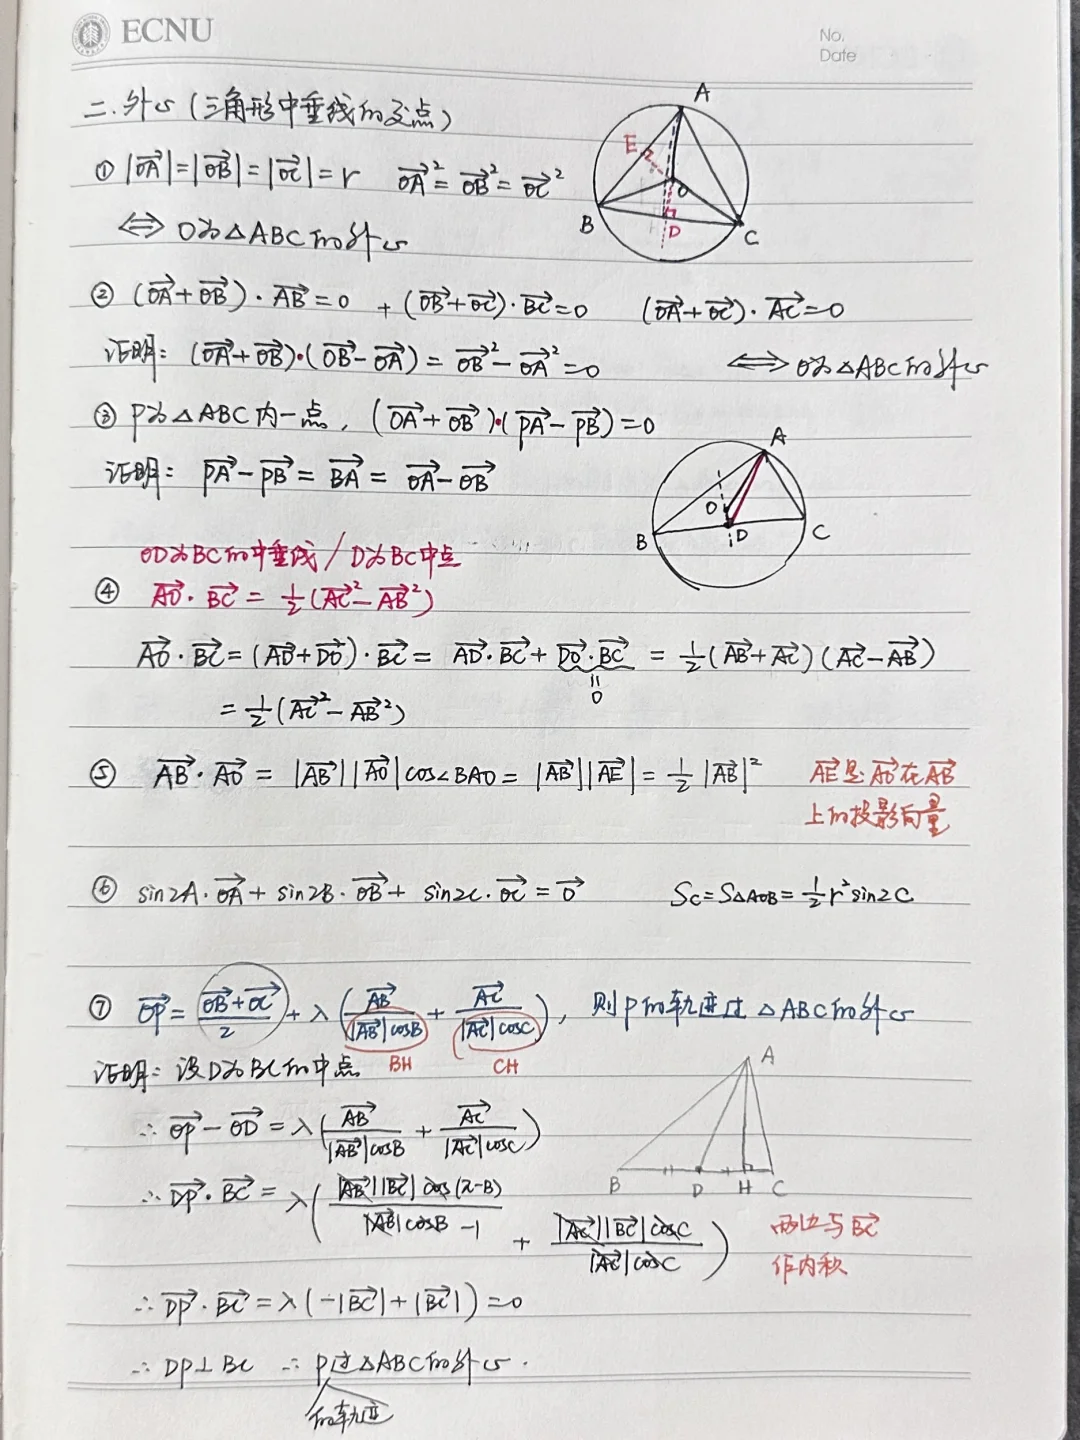 ECNU
No.
Date
二.外心(三角形中垂线的交点)
① |OA→|=|OB→|=|OC→|=r OA→²=OB→²=OC→²
⟺ O为△ABC的外心
A
E
O
B
D
C
② (OA→+OB→)·AB→=0 +(OB→+OC→)·BC→=0 (OA→+OC→)·AC→=0
证明: (OA→+OB→)·(OB→-OA→)=OB→²-OA→²=0 ⟺ O为△ABC的外心
③ P为△ABC内一点, (OA→+OB→)·(PA→-PB→)=0
证明: PA→-PB→=BA→=OA→-OB→
A
O
B
D
C
OD为BC的中垂线/D为BC中点
④ AO→·BC→=½(AC→²-AB→²)
AO→·BC→=(AD→+DO→)·BC→=AD→·BC→+DO→·BC→=½(AB→+AC→)(AC→-AB→)
=
0
=½(AC→²-AB→²)
⑤ AB→·AO→=|AB→||AO→|cos∠BAO=|AB→||AE→|=½|AB→|² AE→是AO→在AB→
上的投影向量
⑥ sin2A·OA→+sin2B·OB→+sin2C·OC→=0→ Sc=S△AOB=½r²sin2C
⑦ OP→=(OB→+OC→)/2+λ(AB→/(|AB→|cosB)+AC→/(|AC→|cosC)), 则P的轨迹过△ABC的外心
BH CH
证明: 设D为BC的中点
∴ OP→-OD→=λ(AB→/(|AB→|cosB)+AC→/(|AC→|cosC))
A
B D H C
∴ DP→·BC→=λ(|AB→||BC→|cos(π-B)/(|AB→|cosB) -1 + |AC→||BC→|cosC/(|AC→|cosC))
两边与BC→
作内积
∴ DP→·BC→=λ(-|BC→|+|BC→|)=0
∴ DP⊥BC ∴ P过△ABC的外心.
的轨迹